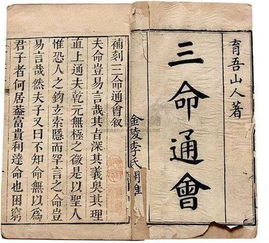 育吾山人著
三命通會
補刻三命通會叙
夫命豈易言哉其旨深其義奥其理
直上通夫乾元無極之微是以聖人
惟恐人之鉤玄索隱而罕言之命豈
易言哉然夫子又曰不知命無以爲
君子者何居葢富貴利達命也困窮